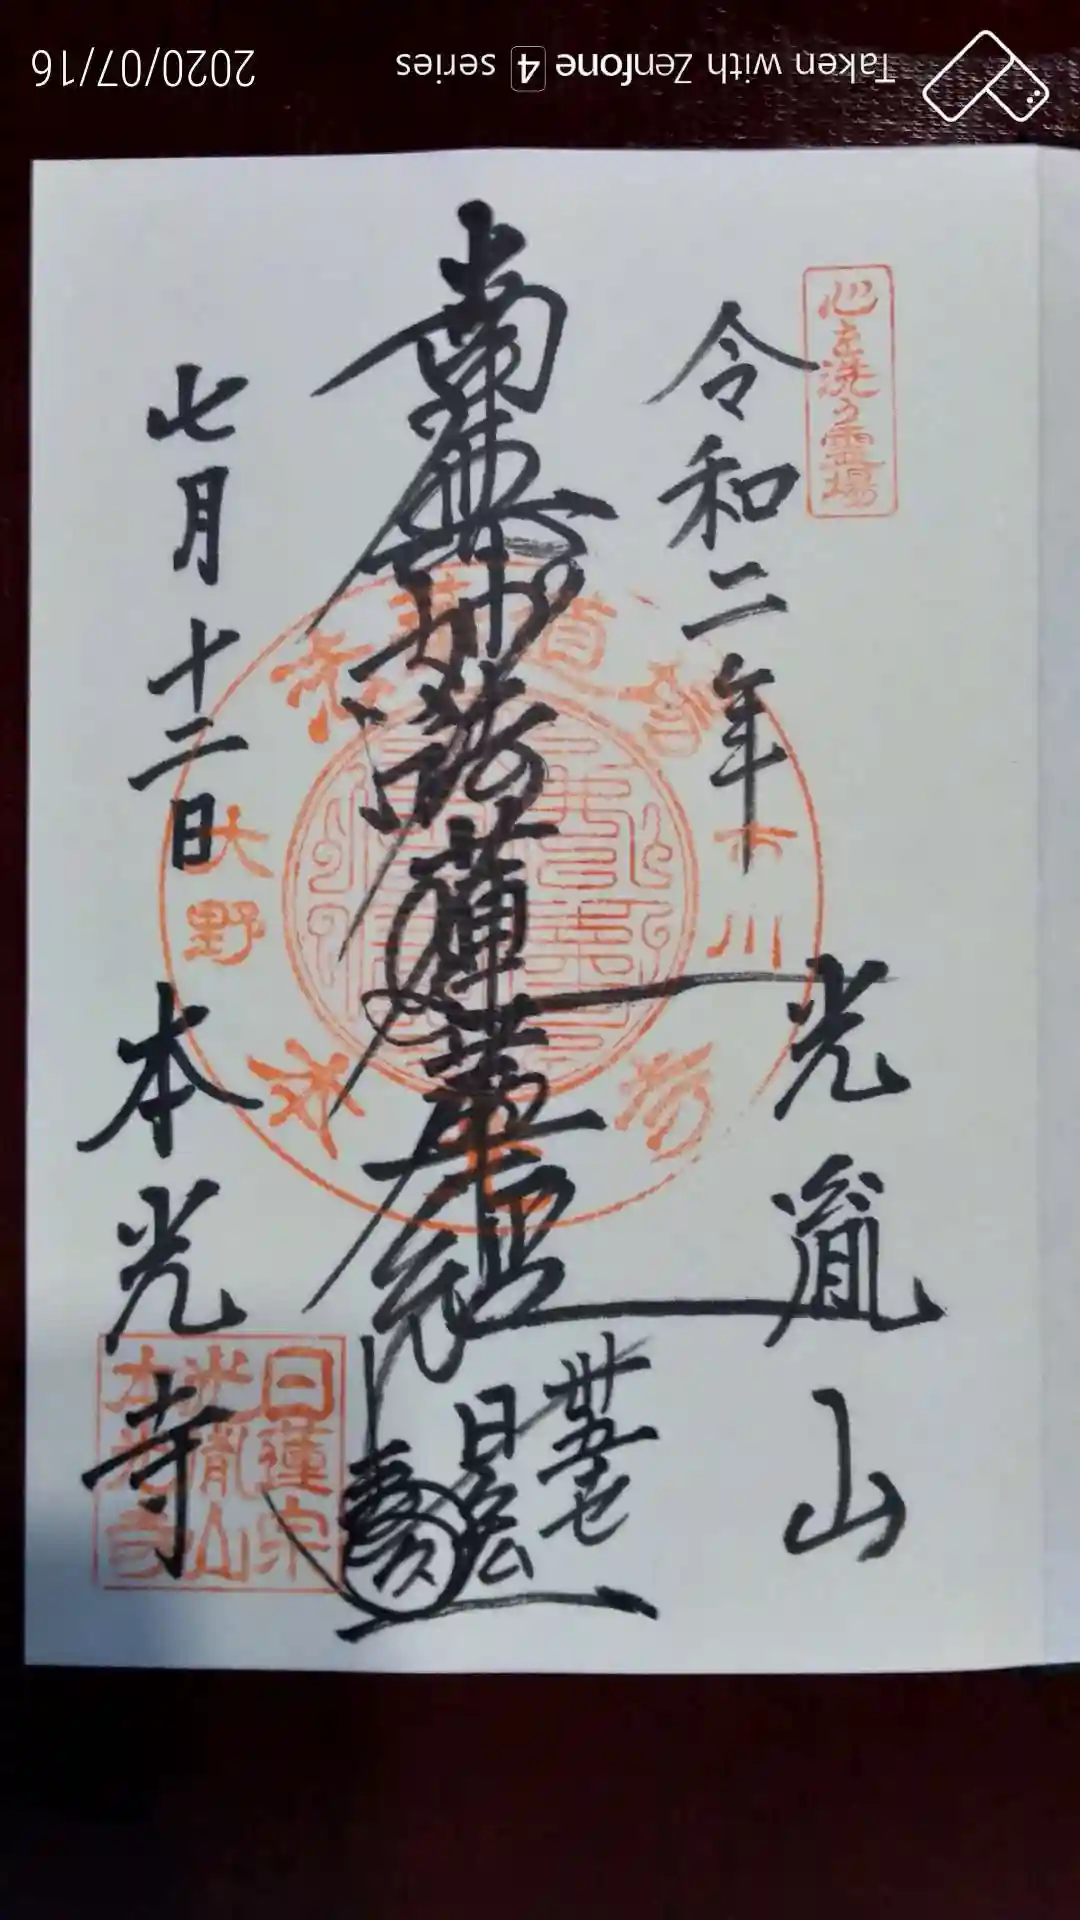 Taken with Zenfone 4 series
2020/07/16
心を洗う霊場
令和二年
光胤山
南無妙法蓮華経
丗五世
日宏
七月十二日
本光寺
市川
大野
日蓮宗
光胤山
本光寺